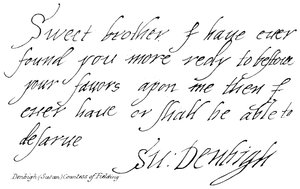 Sweet brother I have ever
found you more redy to bestow
your favors apon me then I
ever have or shall be able to
desarue
Su: Denbigh
Denbigh (Susan) Countess of Fielding